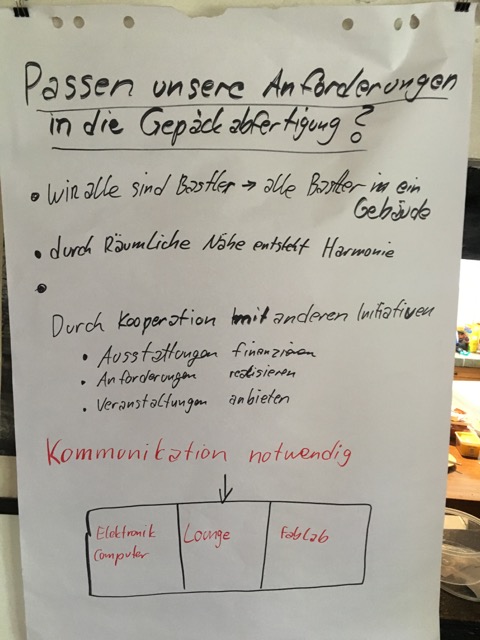 Passen unsere Anforderungen
in die Gepäckabfertigung?
• Wir alle sind Bastler → alle Bastler in ein
Gebäude
• durch Räumliche Nähe entsteht Harmonie
•
Durch Kooperation mit anderen Initiativen
• Ausstattungen finanzieren
• Anforderungen realisieren
• Veranstaltungen anbieten
Kommunikation notwendig
↓
Elektronik Lounge FabLab
Computer